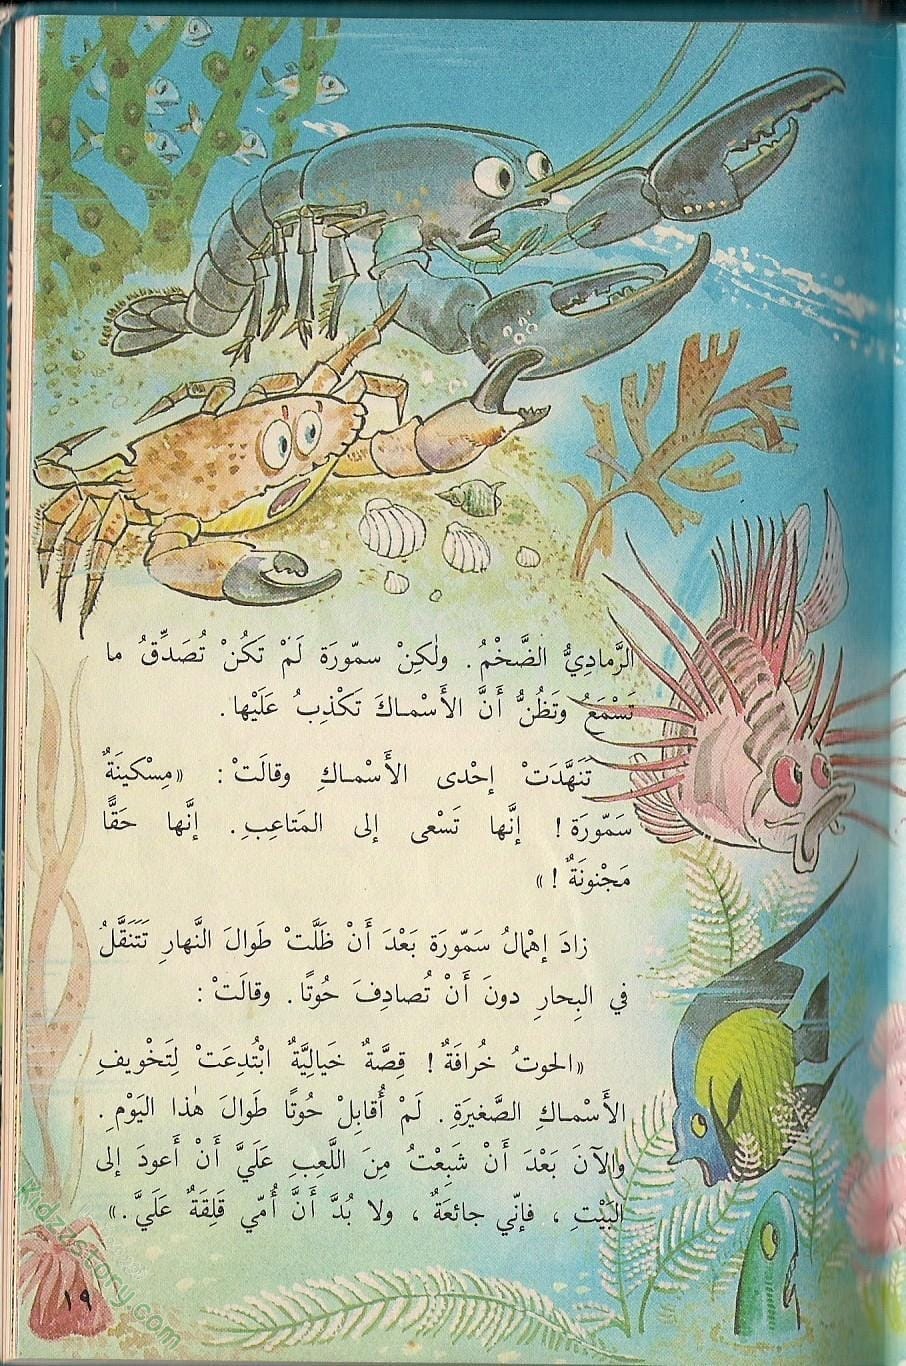 الرَّمادِيُّ الضَّخْمُ. ولٰكِنْ سمّورَة لَمْ تَكُنْ تُصَدِّقُ ما
تَسْمَعُ وتَظُنُّ أَنَّ الأَسْماكَ تَكْذِبُ عَلَيْها.
تَنَهَّدَتْ إحْدى الأَسْماكِ وقالَتْ: «مِسْكينَةٌ
سَمّورَة! إنَّها تَسْعى إلى المَتاعِبِ. إنَّها حَقًّا
مَجْنونَةٌ!»
زادَ إهْمالُ سَمّورَة بَعْدَ أَنْ ظَلَّتْ طَوالَ النَّهارِ تَتَنَقَّلُ
في البِحارِ دونَ أَنْ تُصادِفَ حُوتًا. وقالَتْ:
«الحوتُ خُرافَةٌ! قِصَّةٌ خَيالِيَّةٌ ابْتُدِعَتْ لِتَخْويفِ
الأَسْماكِ الصَّغيرَةِ. لَمْ أُقابِلْ حُوتًا طَوالَ هٰذا اليَوْمِ.
والآنَ بَعْدَ أَنْ شَبِعْتُ مِنَ اللَّعِبِ عَلَيَّ أَنْ أَعودَ إلى
البَيْتِ، فإنّي جائعَةٌ، ولا بُدَّ أَنَّ أُمّي قَلِقَةٌ عَلَيَّ.»
١٩
kidzzstory.com